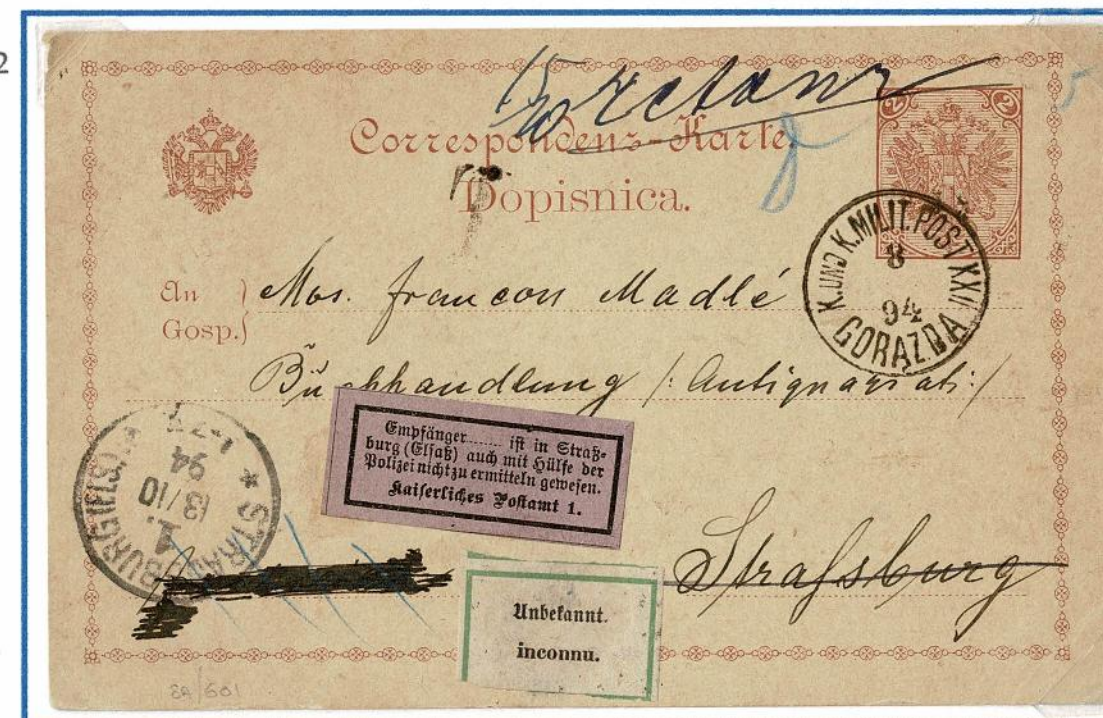 2
15/10 retour
Correspondenz-Karte.
Dopisnica.
2 2
K. UND K. MILIT. POST XXVI
8
94
GORAZDA
An
Gosp.
Mos. francois Madlé
Buchhandlung /: Antiquariat :/
Empfänger ...... ist in Straß-
burg (Elsaß) auch mit Hülfe der
Polizei nicht zu ermitteln gewesen.
Kaiserliches Postamt 1.
* STRASSBURG (ELS)
1.
13/10
94
Strafsburg
Unbekannt.
inconnu.
5